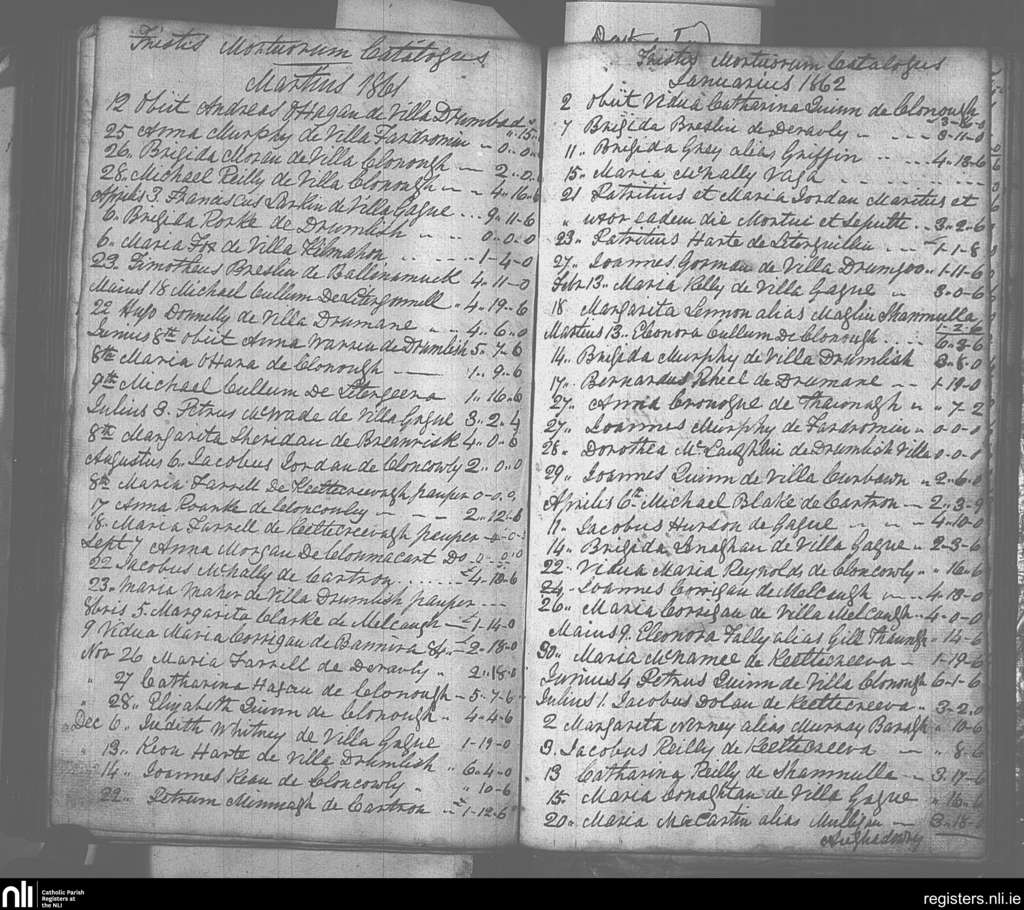 Tristis Mortuorum Catalogus
Martius 1861
12 Obiit Andreas O'Hagan de Villa Drumbad " 15
25 Anna Murphy de Villa Fardromin - 0..0..
26.. Brigida Moran de Villa Clonough - 2..0..
28.. Michael Reilly de Villa Clonough - 4..16..6
Aprilis 3. Franciscus Larkin de Villa Gague ... 9..11-6
6.. Brigida Rorke de Drumlish .. - - - 0..0..0
6.. Maria Fox de Villa Kilmahon - - - - 1-4-0
23.. Timotheus Breslin de Ballenamuck 4..11-0
Maius 18 Michael Cullum De Litergonnell " 4..19..6
22 Hugo Donnelly de Villa Drumane " .. 4..6..0
Junius 8th obiit Anna Warren de Drumlish 5..7..6
8th Maria O'Hara de Clonough —— 1..9..6
9th Michael Cullum De Litergeera 1..16..6
Julius 3. Petrus McWade de Villa Gague 3..2..4
8th Margarita Sheridan de Breanrisk 4..0..6
Augustus 6.. Jacobus Jordan de Cloncowly 2..0..0
8th Maria Farrell De Keeltecreevagh pauper 0-0..0
17 Anna Rourke de Cloncowley - - - 2..12..6
18.. Maria Farrell de Keeltecreevagh pauper - 0-0..
Sept 7 Anna Morgan De Clounacart Do 0..0..0
22 Jacobus McNally de Cartron . . . . . . £4..10-6
23.. Maria Maher de Villa Drumlish pauper - - -
8bris 5 Margarita Clarke de Melcaugh - £1-14-0
9 Vidua Maria Corrigan de Bannira 84. - £2-18-0
Nov 26 Maria Farrell de Derauly " 2..18..0
" 27 Catharina Hagan de Clonough - 5-7-6
" 28.. Elizabeth Quinn de Clonough " 4-4-6
Dec 6.. Judith Whitney de Villa Gague 1-19-0
" 13.. Keon Harte de Villa Drumlish " 6..4..0
" 14 " Joannes Kean de Cloncowly " " 10-6
22.. Petrum Mimnagh de Cartron - £1-12-6
Tristis Mortuorum Catalogus
Januarius 1862
2 Obiit Vidua Catharina Quinn de Clonough - 3-16-0
7 Brigida Breslin de Derauly " - - - 3-11-0
11.. Brigida Gray alias Griffin .. .. .. 4..18-6
15.. Maria McNally Vaga . . . . . . . .
21 Patritius et Maria Jordan Maritus et
" uxor eadem die Mortui et Sepulti .. 3..2..6
23.. Patritius Harte de Leterguillin .. - 1-1-8
27.. Joannes Gorman de Villa Drumgoo " 1-11-6
Feb. 13.. Maria Kelly de Villa Gague " 3-0-6
18 Margarita Lennon alias Maglin Shanmulla 1-2-6
Martius 13. Eleonora Cullum De Clonough . . . 6-3-6
14.. Brigida Murphy de Villa Drumlish 3-8-0
17.. Bernardus Rheel de Drumane - - 1-19-0
27.. Anna Cronogue de Thawnagh " " 7-2
27.. Joannes Murphy de Fardromin " 0-0-0
28.. Dorothea McLaughlin de Drumlish Villa 0-0-0
29.. Joannes Quinn de Villa Curbawn .. 2-6-0
Aprilis 6th Michael Blake de Cartron - 2-3-9
11.. Jacobus Hurson de Gague " " - 4-10-0
14.. Brigida Denaghan de Villa Gague .. 2-3-6
22.. Vidua Maria Reynolds de Cloncowly .. " 16-6
24.. Joannes Corrigan de Melcaugh .. 4-18-0
26.. Maria Corrigan de Villa Melcaugh - 4-0-0
Maius 9. Eleonora Fally alias Gill Thawnagh " 14-6
30.. Maria McNamee de Keeltecreeva - 1-19-6
Junius 4 Petrus Quinn de Villa Clonough 6-1-6
Julius 1. Jacobus Dolan de Keeltecreeva .. 3-2..0
2 Margarita Nerney alias Murray Baragh " 10-6
3. Jacobus Reilly de Keeltecreeva — " 8-6
13 Catharina Reilly de Shanmulla - - 3-17-6
15.. Maria Conaghtan de Villa Gague " 16..6
20.. Maria MacCartin alias Mulligan - 3-18-2
Aughadowry
nli
Catholic Parish
Registers at
the NLI
registers.nli.ie